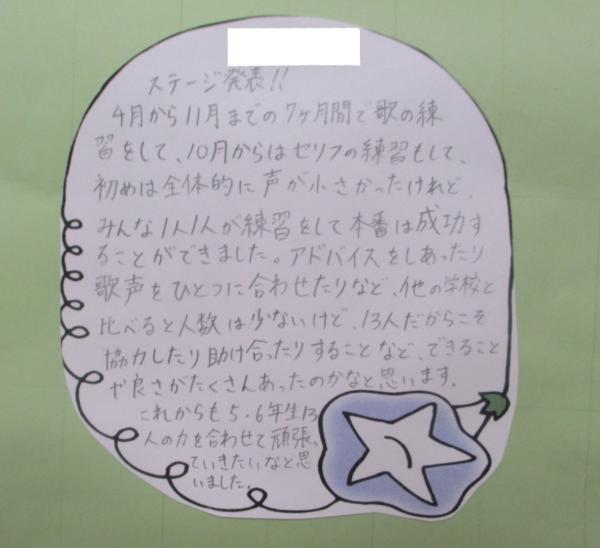 ステージ発表!!
4月から11月までの7ヶ月間で歌の練
習をして、10月からはセリフの練習もして、
初めは全体的に声が小さかったけれど、
みんな1人1人が練習をして本番は成功す
ることができました。アドバイスをしあったり
歌声をひとつに合わせたりなど、他の学校と
比べると人数は少ないけど、13人だからこそ
協力したり助け合ったりすることなど、できること
や良さがたくさんあったのかなと思います。
これからも5・6年生13
人の力を合わせて頑張っ
ていきたいなと思
いました。